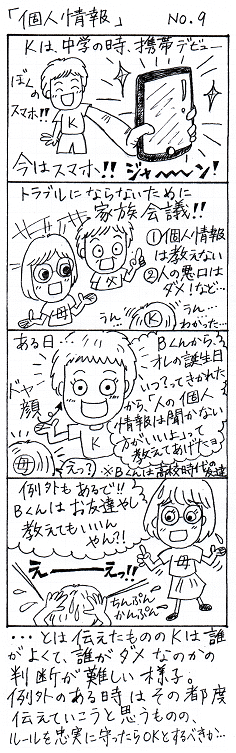 「個人情報」 NO.9
Kは、中学の時、携帯デビュー
ぼくの
スマホ!!
K
今はスマホ!! ジャーン!
トラブルにならないために
家族会議!!
①個人情報
は教えない
②人の悪口は
ダメ!など…
母
父
うん…
K
うん…
わかった…
ある日…
Bくんから、
オレの誕生日
いつ?ってきかれた
から、「人の個人
情報は聞かない
方がいいよ」って
言ってあげたヨ
ドヤ
顔
K
母
えっ?
※Bくんは高校時代の友達
例外もあるで!!
Bくんはお友達やし
教えてもいいん
やん?!
母
えーーえっ!!
ちんぷん
かんぷん〜
…とは伝えたもののKは誰
がよくて、誰がダメなのかの
判断が難しい様子。
例外のある時はその都度
伝えていこうと思うものの、
ルールを忠実に守ったらOKとするべきか…